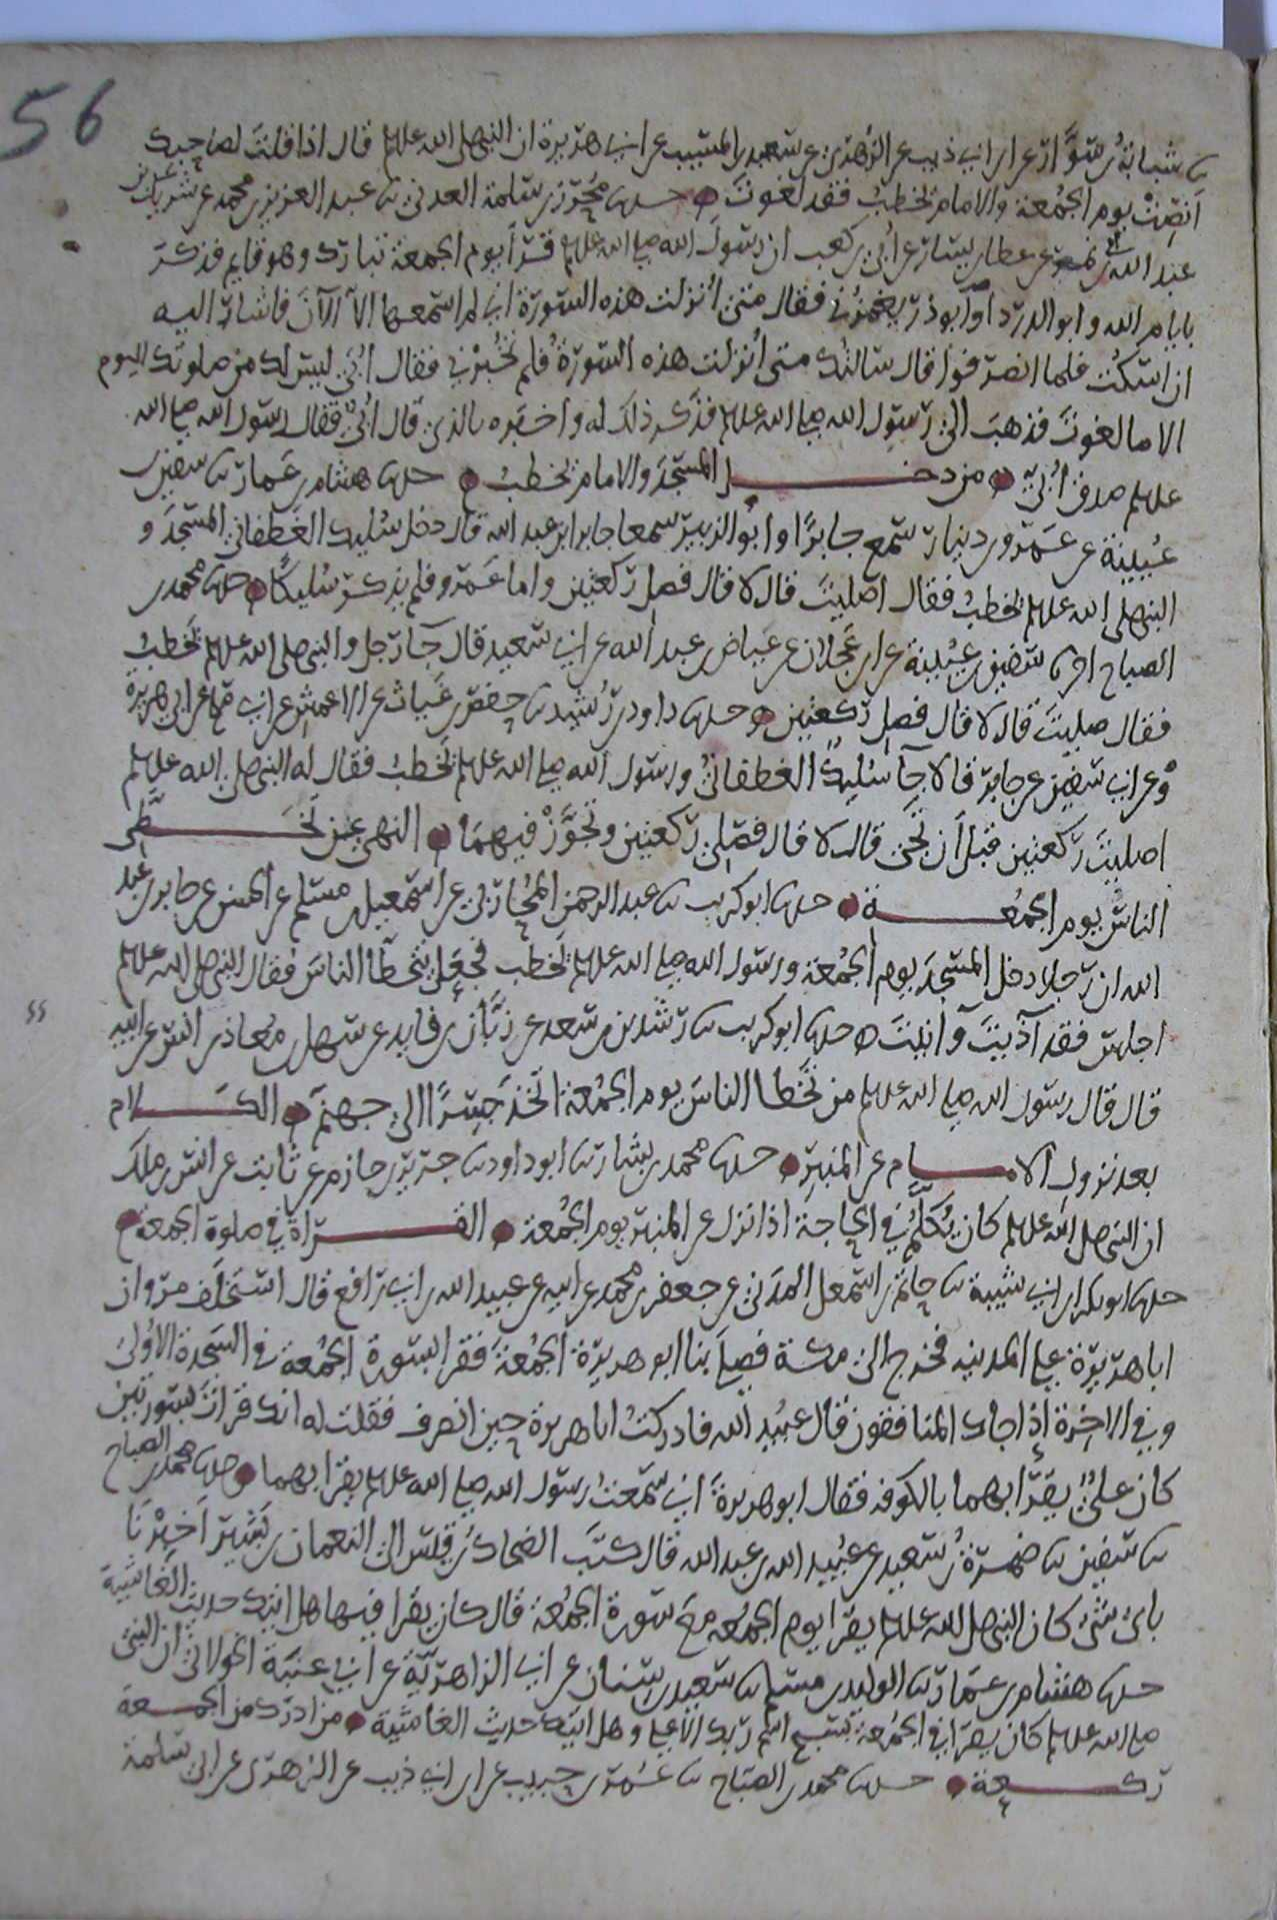 56
ثنا شبابة بن سوار عن ابن ابي ذيب عن الزهري عن سعيد بن المسيب عن ابي هريرة ان النبي صلى الله عليه وسلم قال اذا قلت لصاحبك
انصت يوم الجمعة والامام يخطب فقد لغوت ۞ حدثنا محرز بن سلمة العدني ثنا عبد العزيز بن محمد عن شريك بن
عبد الله بن ابي نمر عن عطا بن يسار عن أبي بن كعب ان رسول الله صلى الله عليه وسلم قرأ يوم الجمعة تبارك وهو قايم فذكر
بايام الله وابو الدرداء او ابو ذر يغمزني فقال متى أنزلت هذه السورة اني لم اسمعها الا الآن فاشار اليه
ان اسكت فلما انصرفوا قال سالتك متى أنزلت هذه السورة فلم تخبرني فقال أبي ليس لك من صلوتك اليوم
الا ما لغوت فذهب الى رسول الله صلى الله عليه وسلم فذكر ذلك له واخبره بالذي قال أبي فقال رسول الله صلى الله
عليه وسلم صدق أبي ۞ من دخل المسجد والامام يخطب ۞ حدثنا هشام بن عمار ثنا سفين بن
عيينة عن عمرو بن دينار سمع جابرا وابو الزبير سمعا جابر ابن عبد الله قال دخل سليك الغطفاني المسجد و
النبي صلى الله عليه وسلم يخطب فقال اصليت قال لا قال فصل ركعتين واما عمرو فلم يذكر سليكا ۞ حدثنا محمد بن
الصباح انا سفين بن عيينة عن ابن عجلان عن عياض بن عبد الله عن ابي سعيد قال جآ رجل والنبي صلى الله عليه وسلم يخطب
فقال صليت قال لا قال فصل ركعتين ۞ حدثنا داود بن رشيد ثنا حفص بن غياث عن الاعمش عن ابي صالح عن ابي هريرة
وعن ابي سفين عن جابر قالا جآ سليك الغطفاني ورسول الله صلى الله عليه وسلم يخطب فقال له النبي صلى الله عليه وسلم
اصليت ركعتين قبل أن تجئ قال لا قال فصلي ركعتين وتجوز فيهما ۞ النهي عن تخطي
الناس يوم الجمعة ۞ حدثنا ابو كريب ثنا عبد الرحمن المحاربي عن اسمعيل بن مسلم عن الحسن عن جابر بن عبد
الله ان رجلا دخل المسجد يوم الجمعة ورسول الله صلى الله عليه وسلم يخطب فجعل يتخطا الناس فقال النبي صلى الله عليه وسلم
اجلس فقد آذيت وآنيت ۞ حدثنا ابو كريب ثنا رشدين بن سعد عن زبان بن فايد عن سهل بن معاذ بن انس عن ابيه
قال قال رسول الله صلى الله عليه وسلم من تخطا الناس يوم الجمعة اتخذ جسرا الى جهنم ۞ الكلام
بعد نزول الامام عن المنبر ۞ حدثنا محمد بن بشار ثنا ابو داود ثنا جرير بن حازم عن ثابت عن انس بن ملك
ان النبي صلى الله عليه وسلم كان يكلم في الحاجة اذا نزل عن المنبر يوم الجمعة ۞ القراة في صلوة الجمعة ۞
حدثنا ابو بكر ابن ابي شيبة ثنا حاتم بن اسمعيل المدني عن جعفر بن محمد عن ابيه عن عبيد الله بن ابي رافع قال استخلف مروان
ابا هريرة على المدينه فخرج الى مكة فصلى بنا ابو هريرة الجمعة فقرا بسورة الجمعة في السجدة الاولى
وفي الاخرة اذا جاك المنافقون قال عبيد الله فادركت ابا هريرة حين انصرف فقلت له انك قرات بسورتين
كان علي يقرأ بهما بالكوفه فقال ابو هريرة اني سمعت رسول الله صلى الله عليه وسلم يقرا بهما ۞ حدثنا محمد بن الصباح
ثنا سفين ثنا ضمرة بن سعيد عن عبيد الله بن عبد الله قال كتب الضحاك بن قيس الى النعمان بن بشير اخبرنا
باي شي كان النبي صلى الله عليه وسلم يقرا يوم الجمعه مع سورة الجمعة قال كان يقرا فيها هل اتيك حديث الغاشية
حدثنا هشام بن عمار ثنا الوليد بن مسلم ثنا سعيد بن سنان عن ابي الزاهرية عن ابي عنبة الخولاني ان النبي
صلى الله عليه وسلم كان يقرا في الجمعة بسبح اسم ربك الاعلى وهل اتيك حديث الغاشية ۞ من ادرك من الجمعة
ركعة ۞ حدثنا محمد بن الصباح ثنا عمر بن حبيب عن ابن ابي ذيب عن الزهري عن ابي سلمة